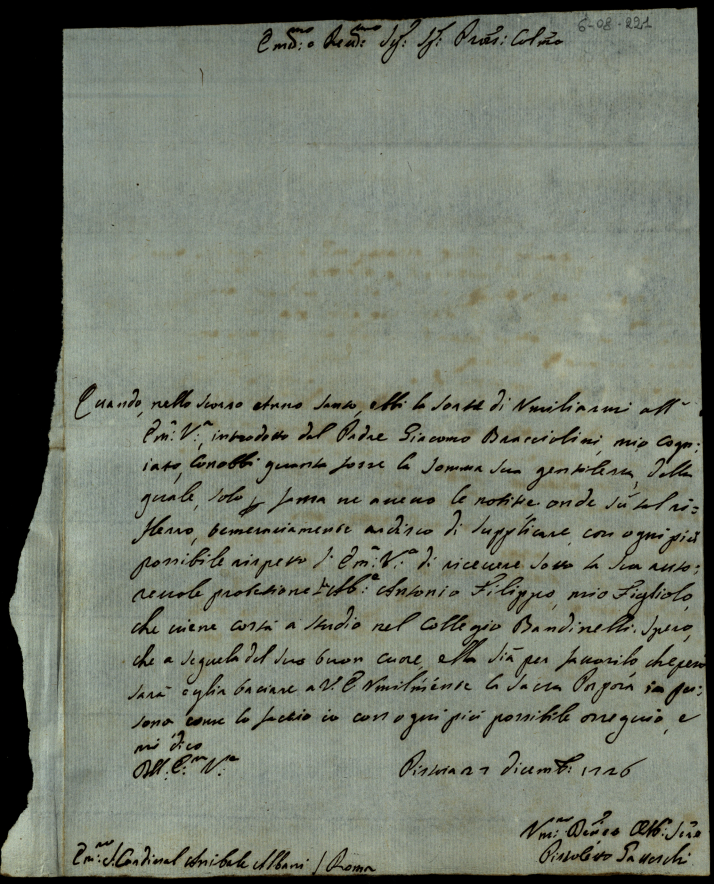 6-08-221
Em.mo e Rev.mo Sig: Sig: Pron: Col.mo
Quando, nello scorso Anno Santo, ebbi la sorte di Umiliarmi all'
Em.a V.a, introdotto dal Padre Giacomo Bracciolini, mio Cogn:
iato, Conobbi quanto fosse la somma sua gentilezza, della
quale, solo p fama ne avevo le notitie onde sù tal ri=
flesso, temerariamente ardisco di supplicare, con ogni più
possibile rispetto l'Em.a V.a di ricevere sotto la sua auto:
revole protezione l'Ab.e Antonio Filippo, mio Figliolo,
che viene costà a studio nel Collegio Bandinelli. Spero,
che a seguela del suo buon cuore, ella sia per favorirlo, che però
sarà egli a baciare a V. E. Umilmente la Sacra Porpora in per:
sona come lo faccio io con ogni più possibile ossequio, e
mi dico
Dell'E.ma V.a
Pistoia 27 dicemb: 1726
Um.mo Dev.o Obb: Ser.e
Pistoletto Gatteschi
Em.mo S. Cardinal Anibale Albani / Roma